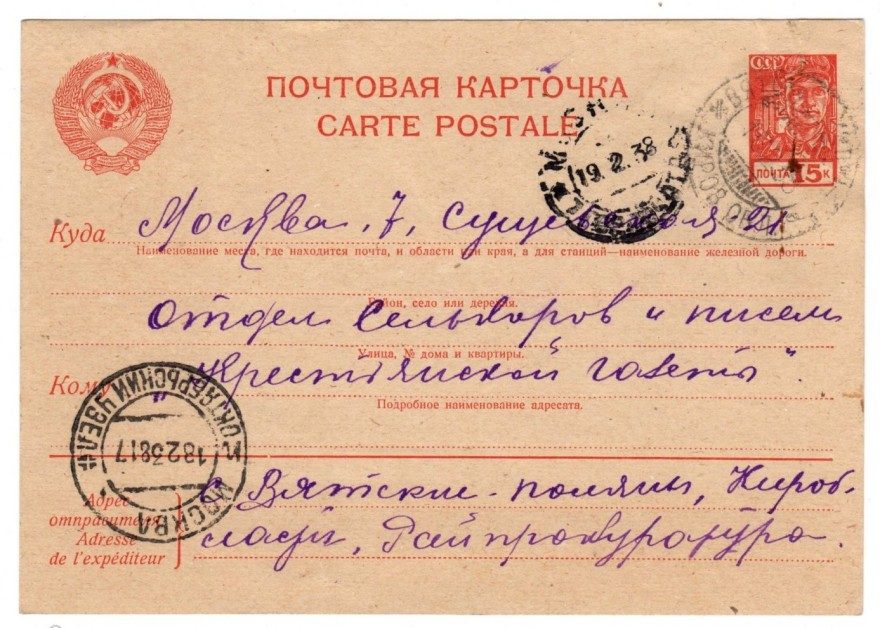 ПОЧТОВАЯ КАРТОЧКА
CARTE POSTALE
СССР
ПОЧТА 15 К
19 2 38
Куда Москва, 7, Сущевская - 21
Наименование места, где находится почта, и области или края, а для станций—наименование железной дороги.
Район, село или деревня.
Отдел Селькоров и писем
Улица, № дома и квартиры.
Кому „Крестьянской газеты".
Подробное наименование адресата.
МОСКВА
18 2 38 17
Адрес отправителя
Adresse de l'expéditeur
с. Вятские - поляны, Киров.
ласти, Райпрокуратура.